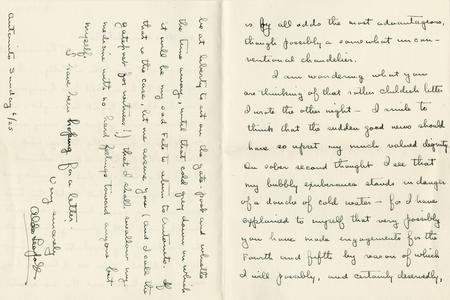 is by all odds the most advantageous,
though possibly a somewhat uncon-
ventional chandelier.
I am wondering what you
are thinking of that rather childish letter
I wrote the other night – I smile to
think that the sudden good news should
have so upset my much valued dignity.
On sober second thought I see that
my bubbly exuberance stands in danger
of a douche of cold water – for I have
explained to myself that very possibly
you have made engagements for the
Fourth and fifth by reason of which
I will possibly, and certainly deservedly,
be at liberty to sit on the gate post and whistle
the time away, until that cold grey dawn on which
it will be my sad Fate to return to Antonito. If
that is the case, let me assure you (and I call the
gatepost for witness!) that I shall swallow my
medicine with no hard feelings toward anyone but
myself.
I have been hoping for a letter.
Very sincerely
Aldo Leopold
Antonito Sunday 6/25